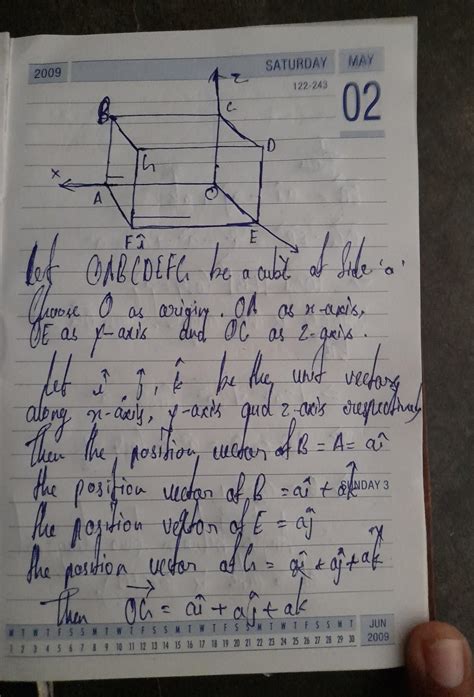 2009 SATURDAY MAY
122-243
02
Z
B C
G D
X A O
F î E
Let OABCDEFG be a cube of side 'a'
Choose O as origin. OA as x-axis,
OE as y-axis and OC as z-axis.
Let î ĵ, k̂ be the unit vectors
along x-axis, y-axis and z-axis respectively
Then the position vector of B = A = aî
SUNDAY 3
the position vector of B = aî + ak̂
the position vector of E = aĵ
the position vector of G = aî + aĵ + ak̂
Then OG⃗ = aî + aĵ + ak̂
M T W T F S S M T W T F S S M T W T F S S M T W T F S S M T JUN
1 2 3 4 5 6 7 8 9 10 11 12 13 14 15 16 17 18 19 20 21 22 23 24 25 26 27 28 29 30 2009